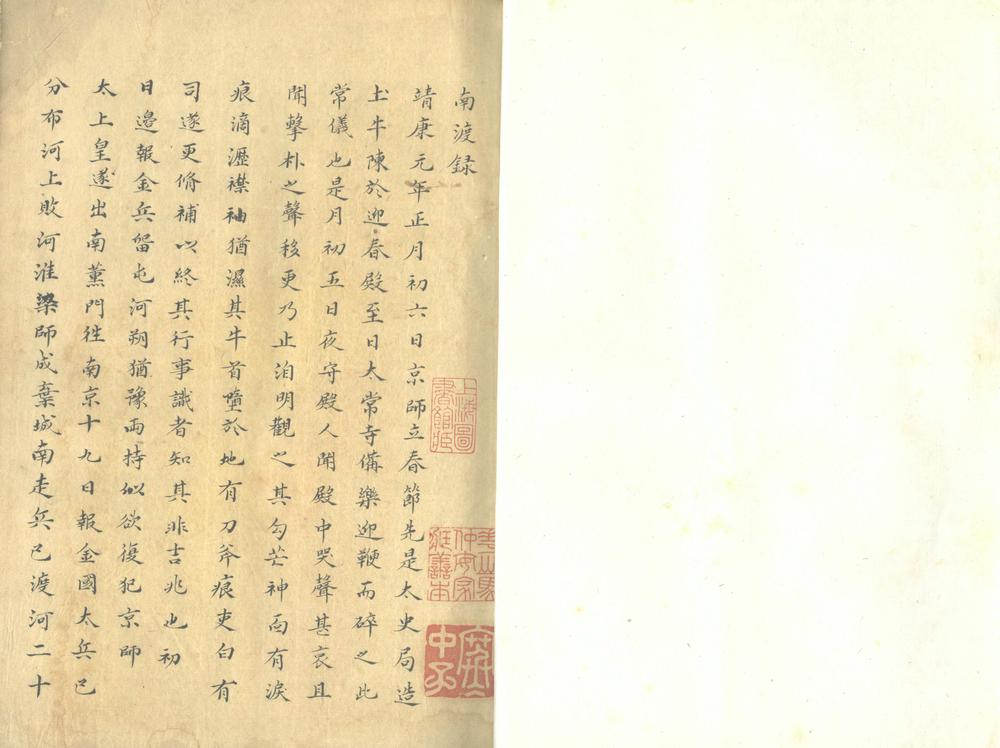 南渡録
靖康元年正月初六日京師立春節先是太史局造
土牛陳於迎春殿至日太常寺備樂迎鞭而碎之此
常儀也是月初五日夜守殿人聞殿中哭聲甚哀且
聞擊朴之聲移更乃止洎明觀之其勾芒神面有淚
痕滴瀝襟袖猶濕其牛首墮於地有刀斧痕吏白有
司遂更脩補以終其行事識者知其非吉兆也初
日邉報金兵留屯河朔猶豫兩持似欲復犯京師
太上皇遂出南薰門徃南京十九日報金國太兵已
分布河上敗河淮梁師成棄城南走兵已渡河二十
上海圖
書館藏